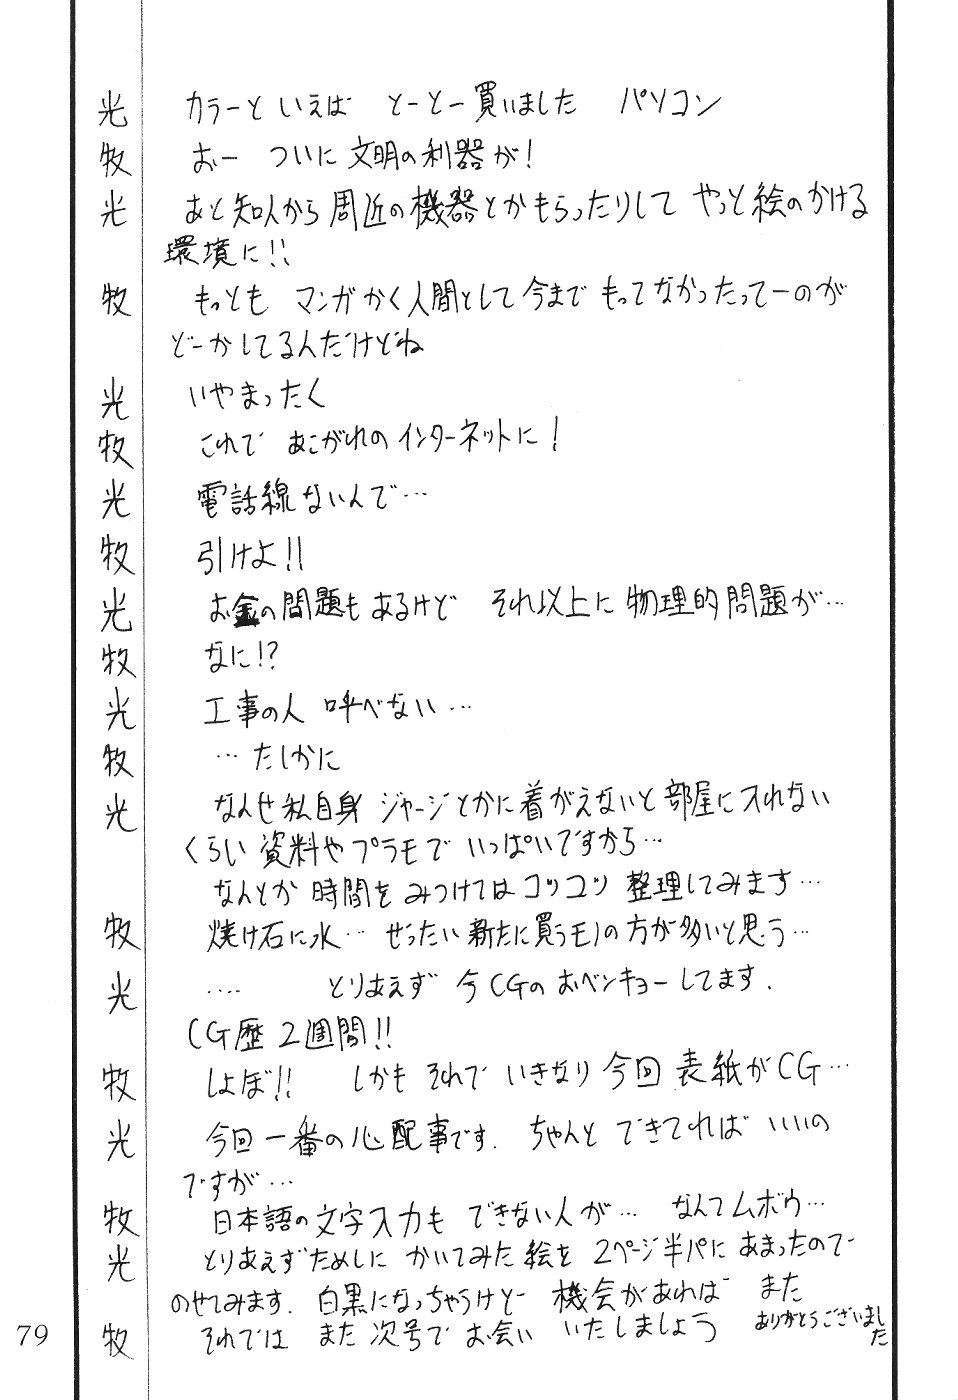 光 カラーと いえば とーとー買いました パソコン
牧 おー ついに 文明の利器が!
光 あと知人から周辺の機器とかもらったりして やっと絵のかける
環境に!!
牧 もっとも マンガかく人間として今まで もってなかったってーのが
どーかしてるんだけどね
光 いやまったく
牧 これで あこがれのインターネットに!
光 電話線ないんで…
牧 引けよ!!
光 お金の問題もあるけど それ以上に物理的問題が…
牧 なに!?
光 工事の人 呼べない…
牧 …たしかに
光 なんせ私自身 ジャージとかに着がえないと部屋に入れない
くらい資料やプラモで いっぱいですから…
なんとか時間をみつけてはコツコツ 整理してみます…
牧 焼け石に水… ぜったい新たに買うモノの方が多いと思う…
光 …. とりあえず 今CGのおベンキョーしてます.
CG歴2週間!!
牧 しょぼ!! しかもそれで いきなり今回表紙がCG…
光 今回一番の心配事です. ちゃんと できてれば いいの
ですが…
牧 日本語の文字入力も できない人が… なんてムボウ…
光 とりあえずためしに かいてみた絵を 2ページ半パにあまったので
のせてみます. 白黒になっちゃうけどー 機会があれば また
牧 それでは また次号で お会い いたしましょう ありがとうございまし
た
79